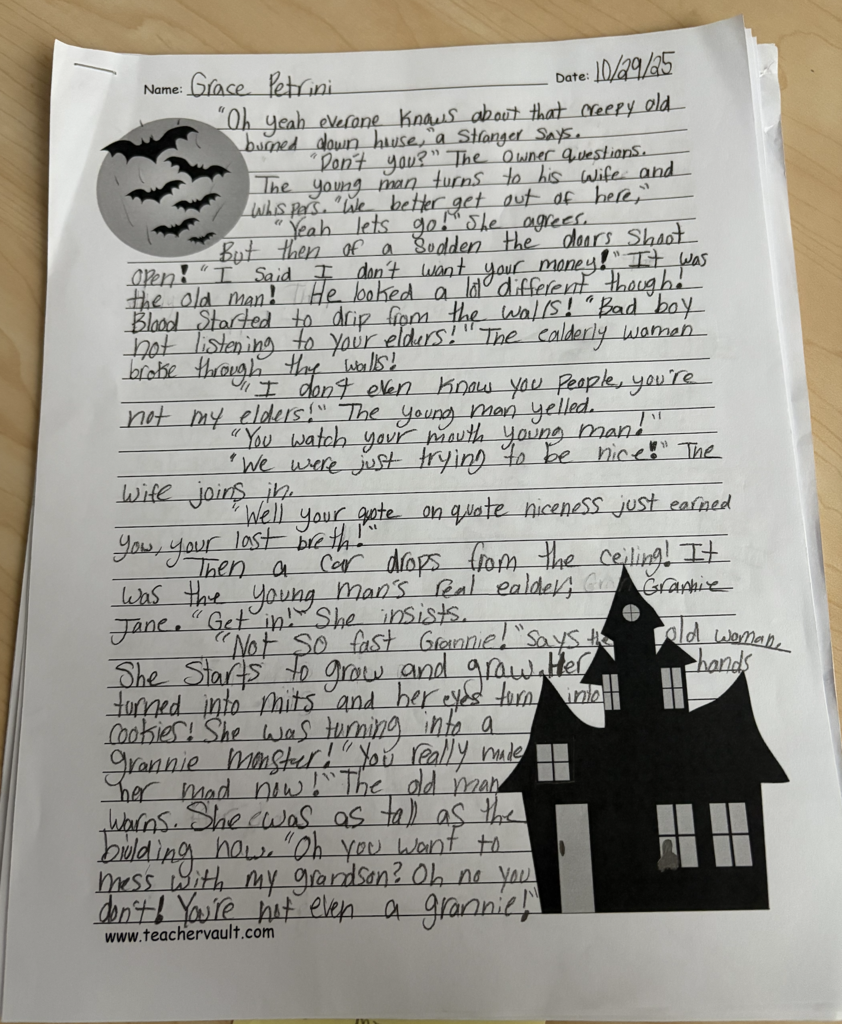 Name: Grace Petrini Date: 10/29/25
"Oh yeah everone knows about that creepy old
burned down house," a Stranger Says.
"Don't you?" The Owner questions.
The young man turns to his wife and
whispers. "We better get out of here,"
"Yeah lets go!" She agrees.
But then of a Sudden the doors Shoot
open! "I Said I don't want your money!" It was
the old man! He looked a lot different though!
Blood Started to drip from the walls! "Bad boy
not listening to your elders!" The ealderly woman
broke through the walls!
"I don't even know you people, you're
not my elders!" The young man yelled.
"You watch your mouth young man!"
"We were just trying to be nice!" The
wife joins in.
"Well your qote on quote niceness just earned
you, your last breth!"
Then a car drops from the ceiling! It
was the young man's real ealder; Grannie
Jane. "Get in!" She insists.
"Not So fast Grannie!" Says the old woman.
She Starts to grow and grow. Her hands
turned into mits and her eyes turn into
cookies! She was turning into a
grannie monster! "You really made
her mad now!" The old man
warns. She was as tall as the
building now. "Oh you want to
mess with my grandson? Oh no you
don't! You're not even a grannie!"
www.teachervault.com